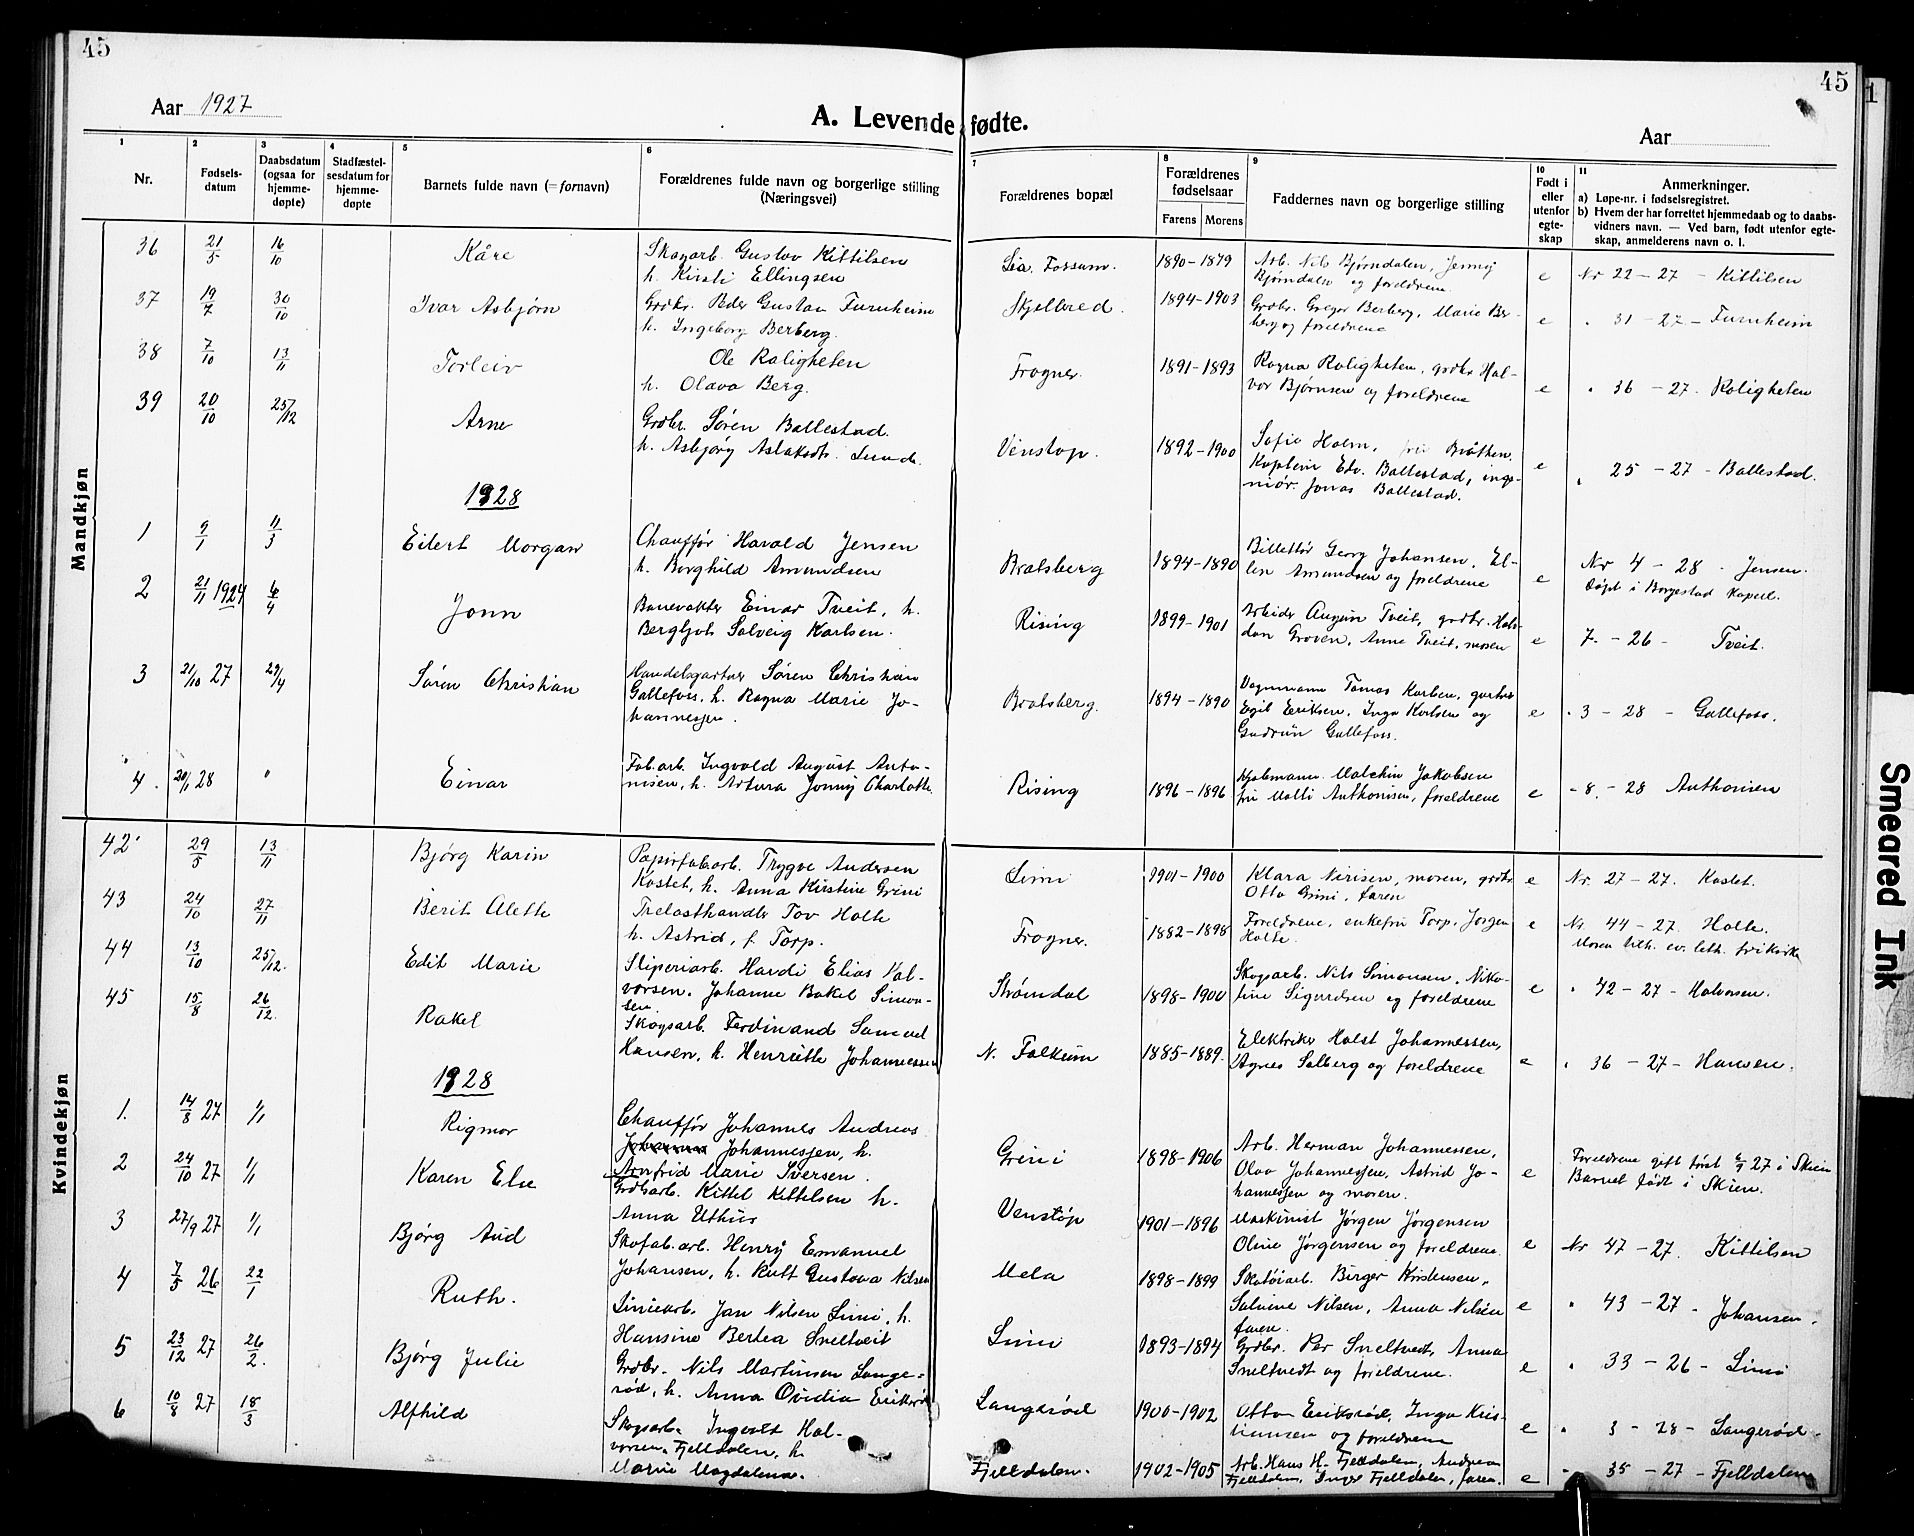 45
45
1
Aar 1927
A. Levende fødte.
Aar
1 2 3 4 5 6 7 8 9 10 11
Nr.
Fødsels-
datum
Daabsdatum
(ogsaa for
hjemme-
døpte)
Stadfæstel-
sesdatum for
hjemme-
døpte
Barnets fulde navn (= fornavn)
Forældrenes fulde navn og borgerlige stilling
(Næringsvei)
Forældrenes bopæl
Forældrenes
fødselsaar
Farens Morens
Faddernes navn og borgerlige stilling
Født i
eller
utenfor
egte-
skap
Anmerkninger.
a) Løpe-nr. i fødselsregistret.
b) Hvem der har forrettet hjemmedaab og to daabs-
vidners navn. — Ved barn, født utenfor egte-
skap, anmelderens navn o. l.
Mandkjøn
36 21/5 16/10 Kåre
Skogarb. Gustav Kittilsen
h. Kirsti Ellingsen
Lia. Fossum. 1890-1879
Arb. Nils Bjørndalen, Jenny
Bjørndalen og foreldrene.
e Nr 22-27 - Kittilsen
37 19/7 30/10 Ivar Asbjørn
Grdbr. Peder Gustav Furnheim
h. Ingeborg Berberg.
Skjelbred. 1894-1903
Grdbr. Gregor Berberg, Marie Ber-
berg og foreldrene
e " 31-27 - Furnheim
38 7/10 13/11 Torleiv
Ole Roligheten
h. Olava Berg.
Frogner. 1891-1893
Ragna Roligheten, grdbr Hal-
vor Bjørnsen og foreldrene
e " 36-27. Roligheten
39 20/10 25/12 Arne
Grdbr. Søren Ballestad.
h. Asbjørg Aslaksdtr. Lunde.
Venstøp. 1892-1900
Sofie Holm, fru Bråthen,
Kaptein Edv. Ballestad, inge-
niør Jonas Ballestad.
e " 25-27 - Ballestad.
1928
1 9/1 11/3 Eilert Morgan
Chauffør Harald Jensen
h. Borghild Amundsen
Bratsberg 1894-1890
Billettør Georg Johansen, El-
len Amundsen og foreldrene
e Nr 4-28 - Jensen.
Døpt i Borgestad Kapell.
2 21/11 1924 6/4 Jonn
Banevokter Einar Tveit, h.
Bergljot Solveig Karlsen.
Rising 1899-1901
Arbeider Augun Tveit, grdbr. Hal-
dan Groven, Anne Tveit, moren
e 7-26 - Tveit.
3 21/10 27 29/4 Søren Christian
Handelsgartner Søren Christian
Gallefoss, h. Ragna Marie Jo-
hannessen.
Bratsberg. 1894-1890
Vognmann Tomas Karlsen, gartner
Egil Eriksen, Inga Karlsen og
Gudrun Gallefoss.
e " 3-28 - Gallefoss.
4. 20/1 28 " Einar
Fab.arb. Ingvald August Anto-
nisen, h. Artura Jonny Charlotte
Rising 1896-1896
Malchin Jakobsen
fru Malli Anthonisen, foreldrene
e - 8 - 28 Anthonisen
Kvindekjøn
42 29/5 13/11 Bjørg Karin
Papirfabarb. Trygve Andersen
Kostet, h. Anna Kirstine Grini
Limi 1901-1900
Klara Nirisen, moren, grdbr.
Otto Grini, faren
e Nr. 27-27. Kostet.
43 24/10 27/11 Berit Alette
Trelasthandler Tov Holte
h. Astrid, f. Torp.
Frogner. 1882-1898
Foreldrene, enkefru Torp, Jørgen
Holte.
e Nr 44-27. Holte.
Moren tilh. ev. luth. frikirke
44 13/10 25/12. Edit Marie
Sliperiarb. Hardi Elias Hal-
vorsen. Johanne Bakel Simon-
sen.
Strømdal 1898-1900
Skogsarb. Nils Simonsen, Niko-
line Sigurdsen og foreldrene
e " 42-27 - Halvorsen.
45 15/8 26/12. Rakel
Skogsarb. Ferdinand Samuel
Hansen, h. Henriette Johannessen
N. Falkum 1885-1889.
Elektriker Holst Johannessen,
Agnes Solberg og foreldrene
e " 36-27 - Hansen.
1928
1. 14/8 27 1/1 Rigmor
Chauffør Johannes Andreas
Johannessen, h.
Arnfrid Marie Iversen.
Grini 1898-1906
Arb. Herman Johannessen,
Olav Johannessen, Astrid Jo-
hannessen og moren.
e Foreldrene gift først 27 i Skien
Barnet født i Skien.
2 24/10 27 1/1 Karen Else
Grdsarb. Kittel Kittelsen h.
Anna Uthus
Venstøp 1901-1896
Maskinist Jørgen Jørgensen
Oline Jørgensen og foreldrene.
e Nr 47-27. Kittilsen
3 27/9 27 1/1 Bjørg Aud
Skofab.arb. Henry Emanuel
Johansen, h. Rutt Gustava Nilsen
Mela 1898-1899
Skotøiarb. Birger Kristensen,
Salvine Nilsen, Anna Nilsen
faren.
e " 43-27 - Johansen.
4 7/5 26 22/1 Ruth.
Liniearb. Jan Nilsen Limi, h.
Hansine Bertea Sneltveit
Limi 1893-1894
Grdbr. Per Sneltvedt, Anna
Sneltvedt og foreldrene.
e " 33-26 - Limi
5 23/12 27 26/2. Bjørg Julie
Grdbr. Nils Martinsen Lange-
rød, h. Anna Ovidia Eriksrød
Langerød 1900-1902
Otto Eriksrød, Inga Kris-
tiansen og foreldrene
e " 3-28 - Langerød -
6 10/8 27 18/3 Alfhild
Skogsarb. Ingvalt Hal-
vorsen Fjelldalen, h.
Marie Magdalena.
Fjelldalen. 1902-1905
Arb. Hans H. Fjelldalen, Andrea
Fjelldalen, Inger Fjelldalen, faren.
e " 35-27 - Fjelldalen
Smeared Ink